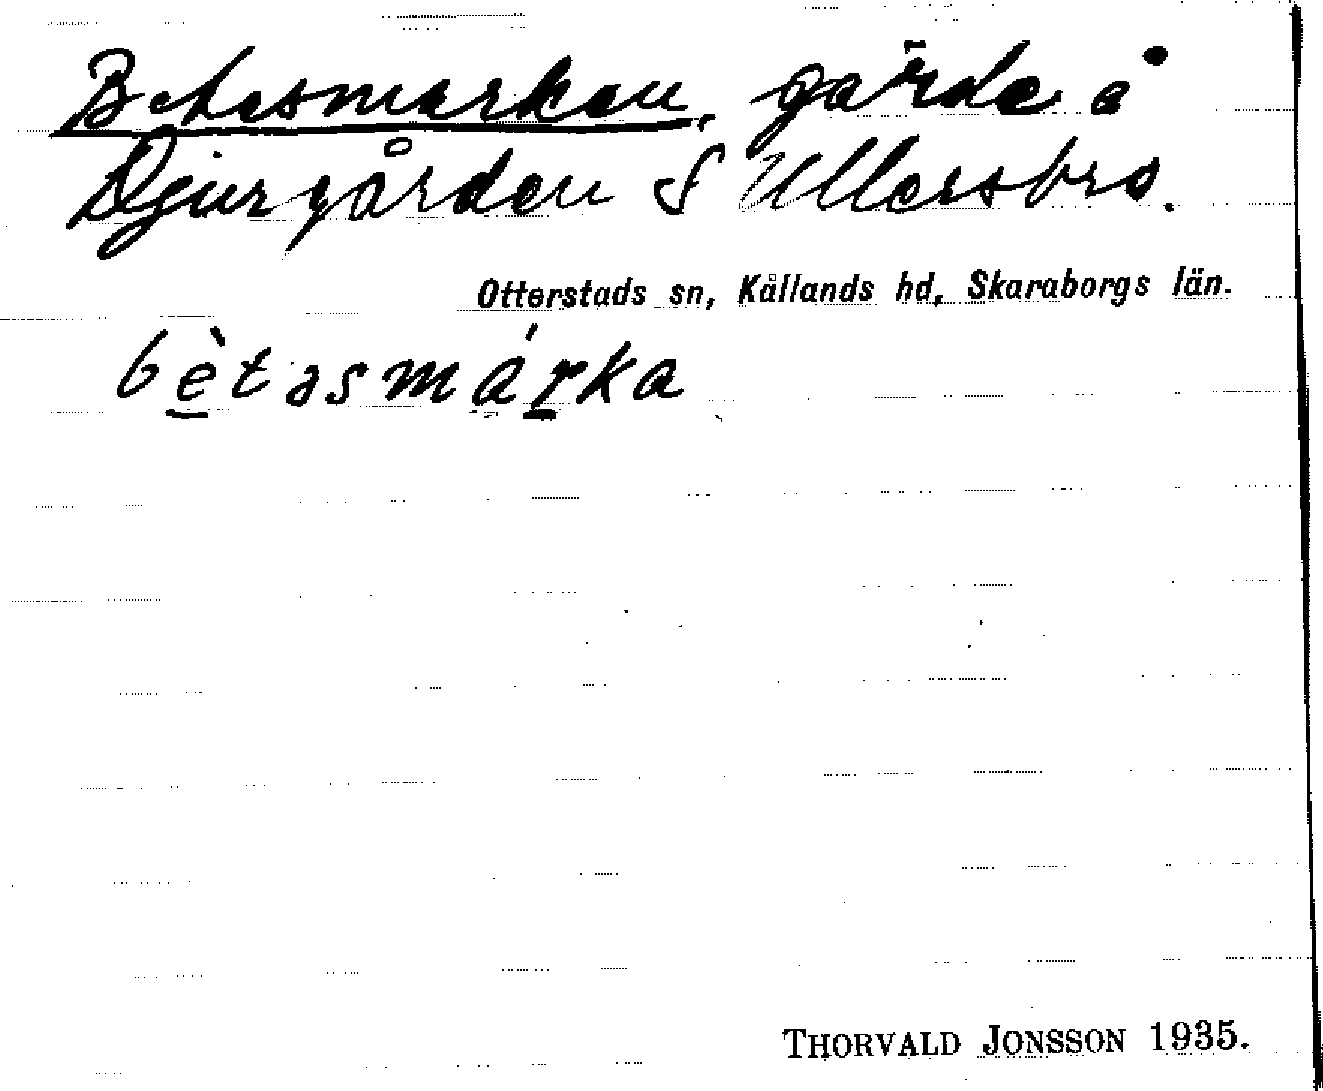 Betesmarken, gärde å
Djurgården S Ullersbro.
Otterstads sn, Kållands hd, Skaraborgs län.
bètəsmárka
THORVALD JONSSON 1935.